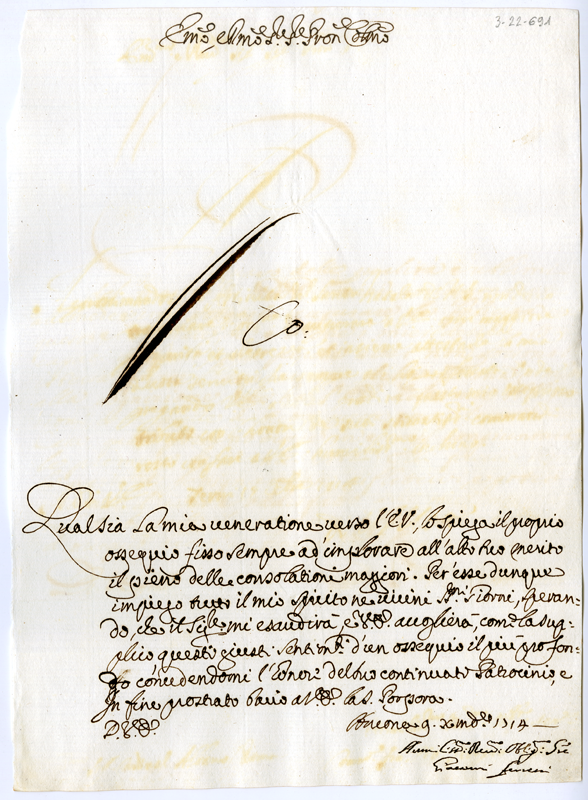 3-22-691
Emõ, e Rmõ Sig.r Sig.r Pron Colmõ
Co:
Qual sia la mia veneratione verso l'E.V., lo spiega il proprio
ossequio fisso sempre ad'implorare all'alto suo merito
il pieno delle consolationi maggiori. Per esse dunque
impiego tutto il mio spirito ne vicini S.ti Giorni, speran-
do, che il Sig.re mi esaudirà, e V.E. accoglierà, come la sup-
plico, questi giusti sentimti d'un ossequio il più profon-
do concedendomi l'honore del suo continuato Patrocinio, e
In fine prostrato bacio a V.E. la S. Porpora.
D.V.E.
Ancona 9. Xmbre 1714
Humilissmo Devmo Obligmo Sre
Giacomo